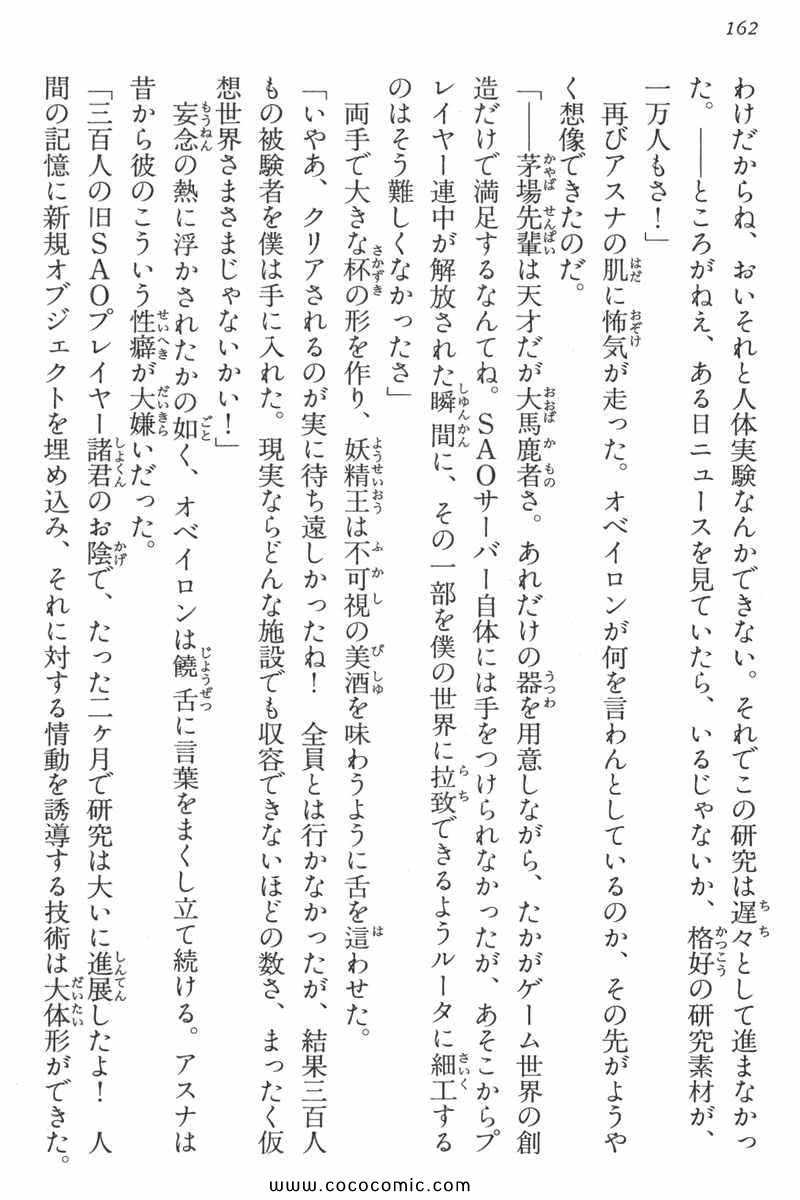 162
わけだからね、おいそれと人体実験なんかできない。それでこの研究は遅々として進まなかっ
た。――ところがねえ、ある日ニュースを見ていたら、いるじゃないか、格好の研究素材が、
一万人もさ！」
　再びアスナの肌に怖気が走った。オベイロンが何を言わんとしているのか、その先がようや
く想像できたのだ。
「――茅場先輩は天才だが大馬鹿者さ。あれだけの器を用意しながら、たかがゲーム世界の創
造だけで満足するなんてね。ＳＡＯサーバー自体には手をつけられなかったが、あそこからプ
レイヤー連中が解放された瞬間に、その一部を僕の世界に拉致できるようルータに細工する
のはそう難しくなかったさ」
　両手で大きな杯の形を作り、妖精王は不可視の美酒を味わうように舌を這わせた。
「いやあ、クリアされるのが実に待ち遠しかったね！　全員とは行かなかったが、結果三百人
もの被験者を僕は手に入れた。現実ならどんな施設でも収容できないほどの数さ、まったく仮
想世界さまさまじゃないかい！」
　妄念の熱に浮かされたかの如く、オベイロンは饒舌に言葉をまくし立て続ける。アスナは
昔から彼のこういう性癖が大嫌いだった。
「三百人の旧ＳＡＯプレイヤー諸君のお陰で、たった二ヶ月で研究は大いに進展したよ！　人
間の記憶に新規オブジェクトを埋め込み、それに対する情動を誘導する技術は大体形ができた。
www.cococomic.com